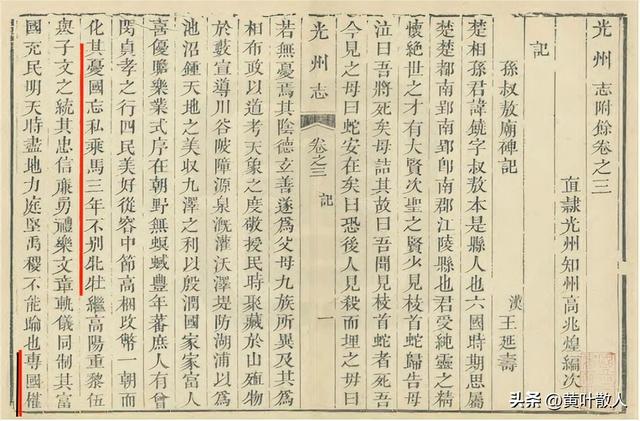 光州志附餘卷之三
直隸光州知州高兆煌編次
記
孫叔敖廟碑記 漢 王延壽
楚相孫君諱饒字叔敖本是縣人也六國時期思屬
楚楚都南郢南郢卽南郡江陵縣也君受純靈之精
懷絶世之才有大賢次聖之賢少見枝首蛇歸告母
泣曰吾將死矣母詰其故曰吾聞見枝首蛇者死吾
今見之母曰蛇安在矣曰恐後人見殺而埋之母曰
光州志 卷之三 記 一
若無憂焉其陰德玄善遂爲父母九族所異及其爲
相布政以道考天象之度敬授民時聚藏於山殖物
於藪宣導川谷陂障源泉漑灌沃澤堤防湖浦以爲
池沼鍾天地之美收九澤之利以殷潤國家家富人
喜優贍樂業式序在朝野無螟蜮豐年蕃庶人有曾
閔貞孝之行四民美好從容中節高梱改幣一朝而
化其憂國忘私乘馬三年不别牝牡繼高陽重黎伍
與子文之統其忠信廉勇禮樂文章軌儀同制其富
國充民明天時盡地力庭堅禹稷不能踰也專國權
头条 @黄叶散人